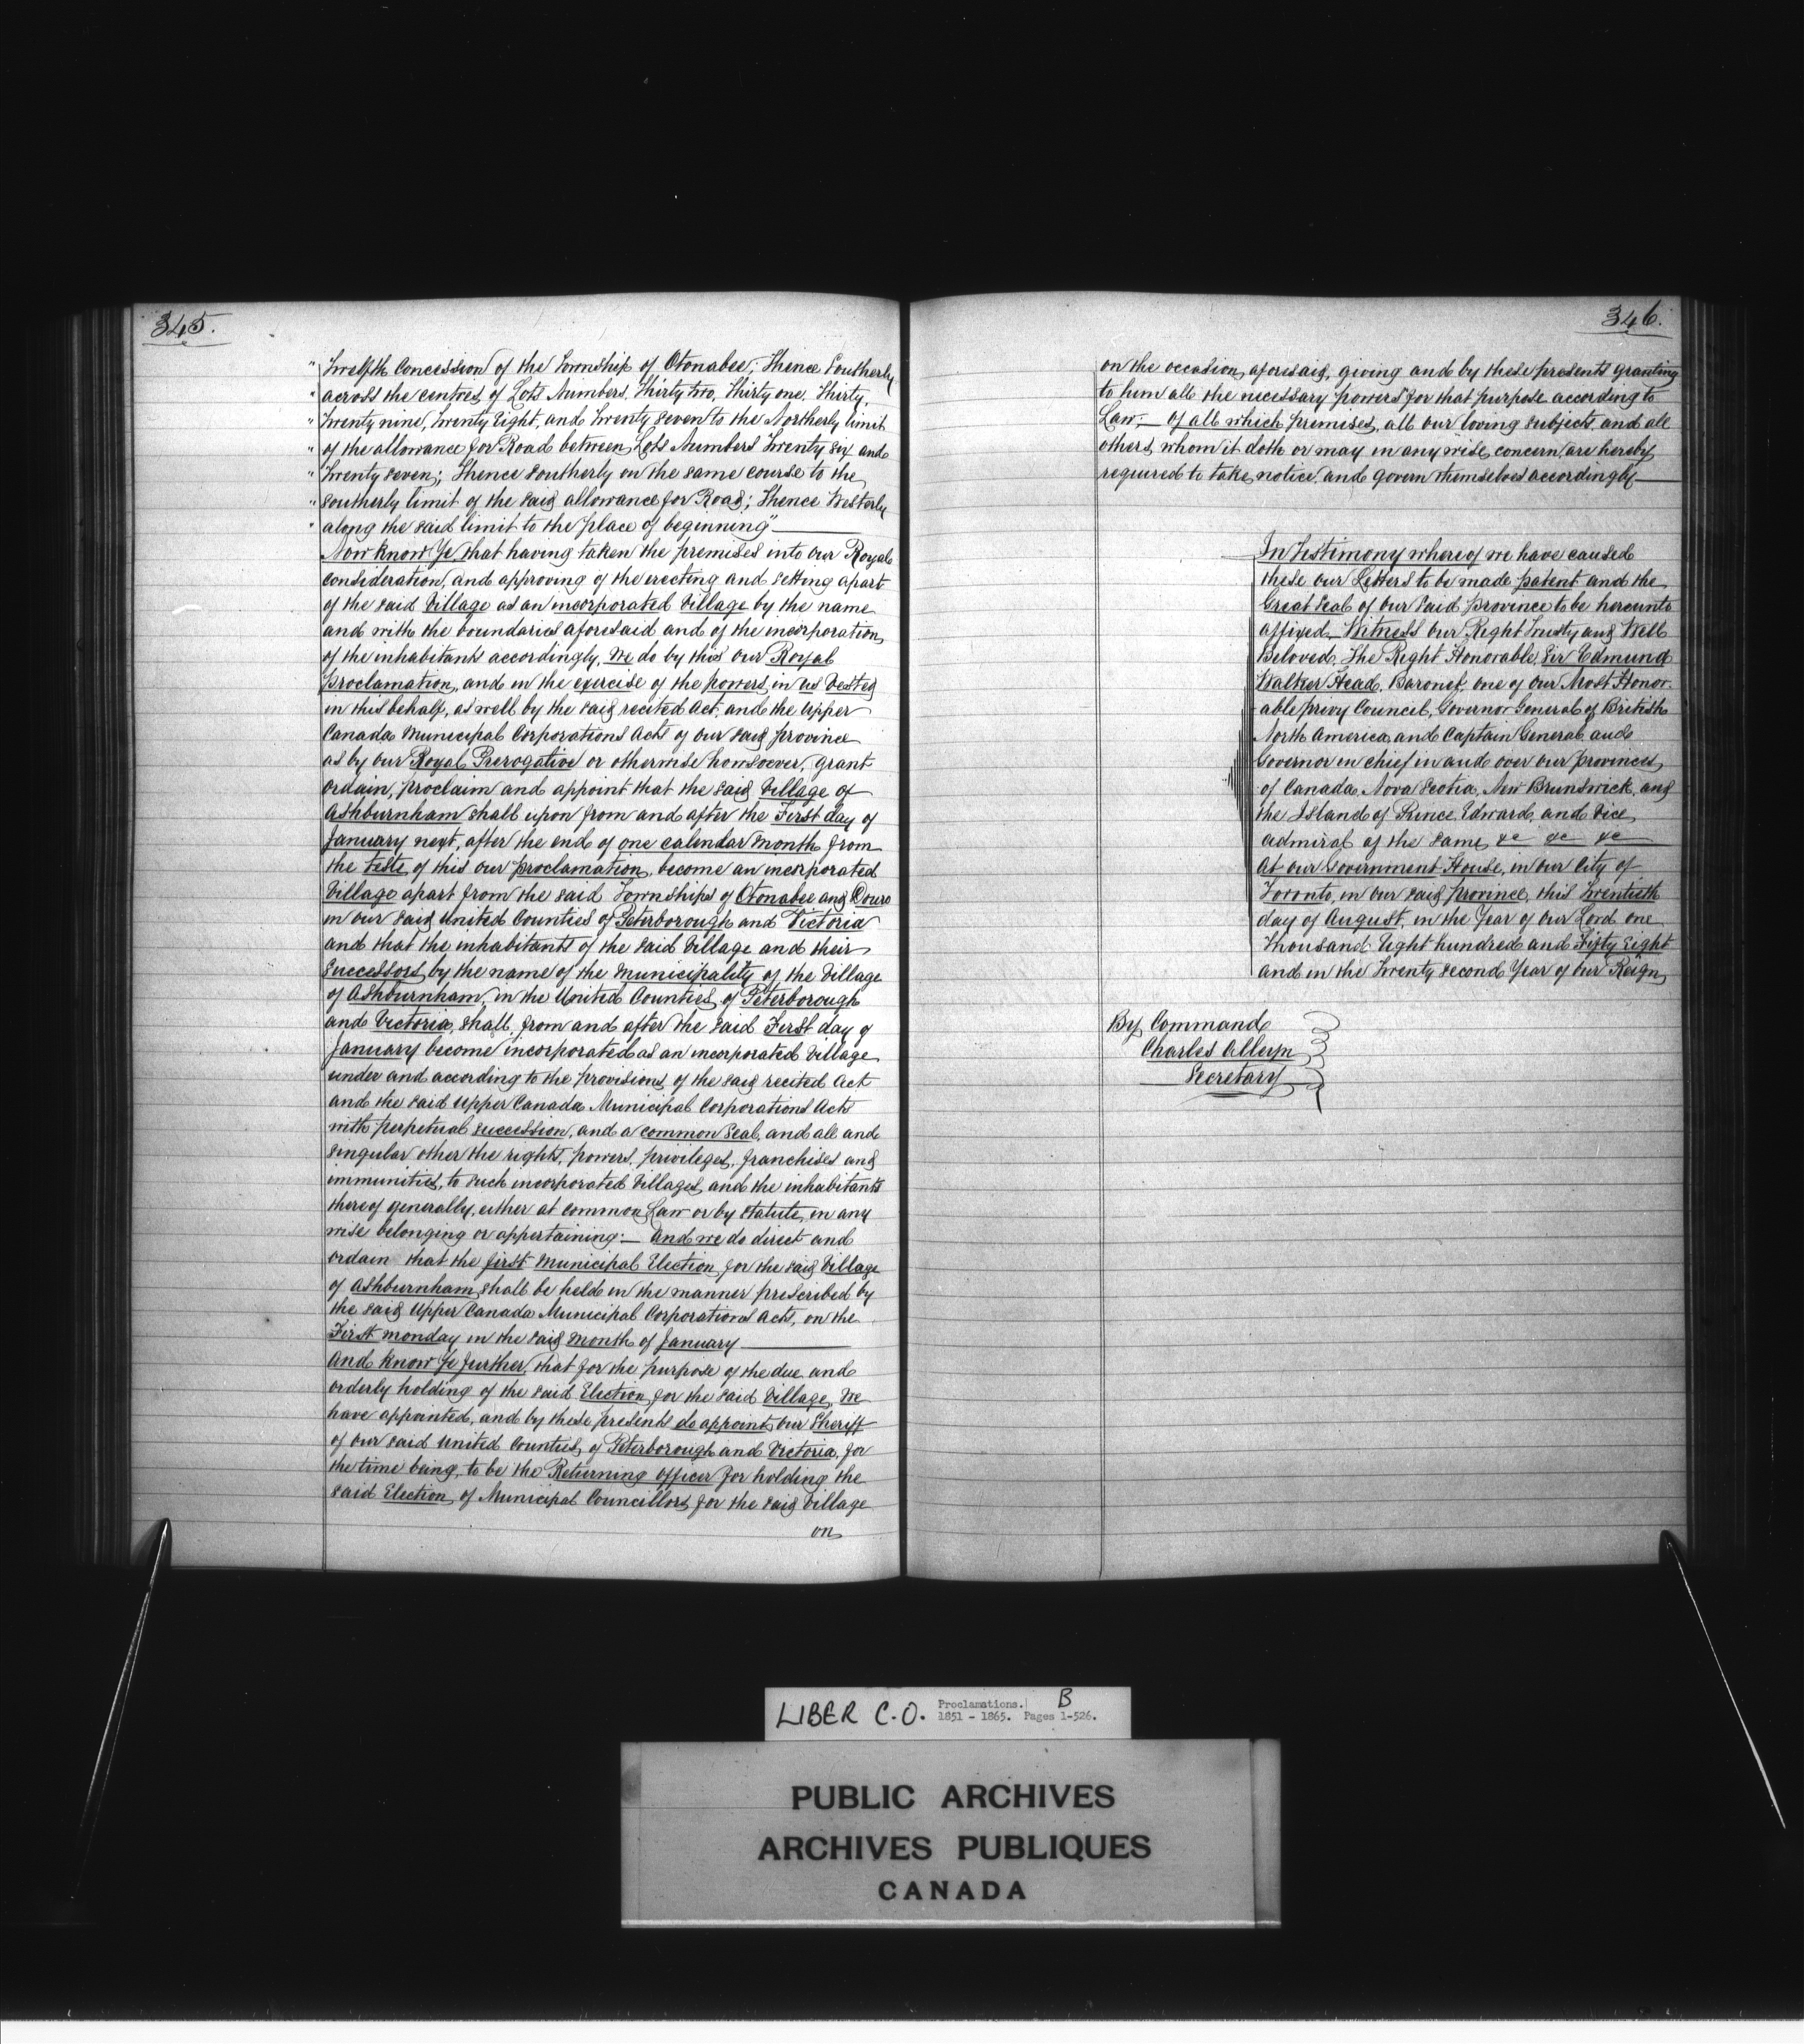 345.
" Twelfth Concession of the Township of Otonabee; Thence Southerly
" across the centres of Lots Numbers Thirty two, Thirty one, Thirty,
" Twenty nine, Twenty Eight, and Twenty seven to the Northerly limit
" of the allowance for Road between Lots Numbers Twenty six and
" Twenty seven; Thence southerly on the same course to the
" southerly limit of the said allowance for Road; Thence Westerly
" along the said limit to the place of beginning"
Now know Ye, that having taken the premises into our Royal
consideration, and approving of the erecting and setting apart
of the said Village as an incorporated Village by the name
and with the boundaries aforesaid and of the incorporation
of the inhabitants accordingly, We do by this our Royal
proclamation, and in the exercise of the powers in us vested
in this behalf, as well by the said recited Act, and the Upper
Canada Municipal Corporations Acts of our said province
as by our Royal Prerogative or otherwise howsoever, grant
ordain, proclaim and appoint that the said Village of
Ashburnham shall upon from and after the First day of
January next, after the end of one calendar month from
the teste of this our proclamation, become an incorporated
Village apart from the said Townships of Otonabee and Douro
in our said United Counties of Peterborough and Victoria
and that the inhabitants of the said Village and their
successors by the name of the Municipality of the Village
of Ashburnham, in the United Counties of Peterborough
and Victoria, shall, from and after the said First day of
January become incorporated as an incorporated Village
under and according to the provisions of the said recited Act
and the said Upper Canada Municipal Corporations Acts
with perpetual succession, and a common Seal, and all and
singular other the rights, powers, privileges, franchises and
immunities, to such incorporated Villages and the inhabitants
thereof generally, either at common Law or by statute, in any
wise belonging or appertaining:— And we do direct and
ordain that the first Municipal Election for the said Village
of Ashburnham shall be held in the manner prescribed by
the said Upper Canada Municipal Corporations Acts, on the
First monday in the said month of January
And know Ye further, that for the purpose of the due and
orderly holding of the said Election for the said Village, We
have appointed, and by these presents do appoint our Sheriff
of our said United Counties of Peterborough and Victoria, for
the time being, to be the Returning officer for holding the
said Election of Municipal Councillors for the said Village
on
346.
on the occasion aforesaid, giving and by these presents granting
to him all the necessary powers for that purpose according to
Law;— Of all which premises, all our loving subjects, and all
others whom it doth or may in anywise concern, are hereby
required to take notice, and govern themselves accordingly—
In Testimony whereof we have caused
these our Letters to be made patent and the
Great Seal of our said province to be hereunto
affixed, Witness our Right Trusty and Well
Beloved, The Right Honorable, Sir Edmund
Walker Head, Baronet, one of our Most Honor-
able privy Council, Governor General of British
North America, and Captain General and
Governor in chief in and over our provinces
of Canada, Nova Scotia, New Brunswick, and
the Island of Prince Edward, and Vice
admiral of the same &c &c &c
At our Government House, in our City of
Toronto, in our said province, this Twentieth
day of August, in the Year of our Lord one
thousand Eight hundred and Fifty Eight
and in the Twenty second Year of our Reign,
By Command
Charles Alleyn
Secretary
LIBER C.O. Proclamations. B
1851 - 1865. Pages 1-526.
PUBLIC ARCHIVES
ARCHIVES PUBLIQUES
CANADA